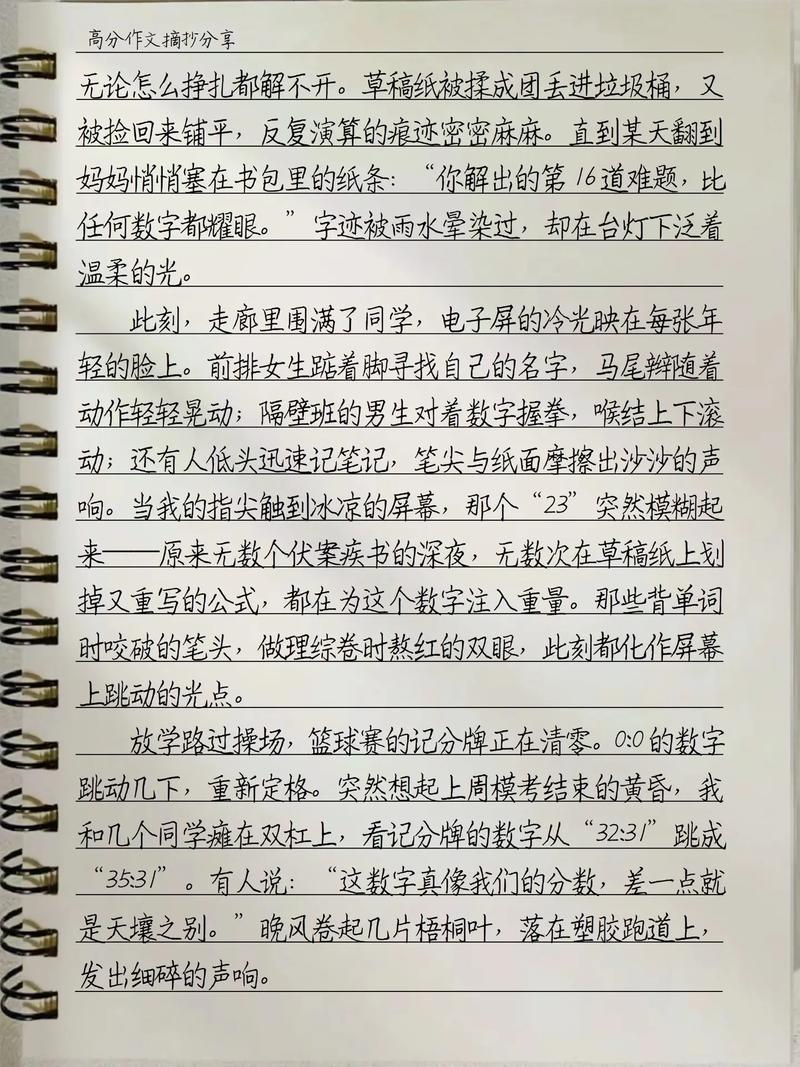 高分作文摘抄分享
无论怎么挣扎都解不开。草稿纸被揉成团丢进垃圾桶，又
被捡回来铺平，反复演算的痕迹密密麻麻。直到某天翻到
妈妈悄悄塞在书包里的纸条：“你解出的第16道难题，比
任何数字都耀眼。”字迹被雨水晕染过，却在台灯下泛着
温柔的光。
此刻，走廊里围满了同学，电子屏的冷光映在每张年
轻的脸上。前排女生踮着脚寻找自己的名字，马尾辫随着
动作轻轻晃动；隔壁班的男生对着数字握拳，喉结上下滚
动；还有人低头迅速记笔记，笔尖与纸面摩擦出沙沙的声
响。当我的指尖触到冰凉的屏幕，那个“23”突然模糊起
来——原来无数个伏案疾书的深夜，无数次在草稿纸上划
掉又重写的公式，都在为这个数字注入重量。那些背单词
时咬破的笔头，做理综卷时熬红的双眼，此刻都化作屏幕
上跳动的光点。
放学路过操场，篮球赛的记分牌正在清零。0:0的数字
跳动几下，重新定格。突然想起上周模考结束的黄昏，我
和几个同学瘫在双杠上，看记分牌的数字从“32:31”跳成
“35:31”。有人说：“这数字真像我们的分数，差一点就
是天壤之别。”晚风卷起几片梧桐叶，落在塑胶跑道上，
发出细碎的声响。